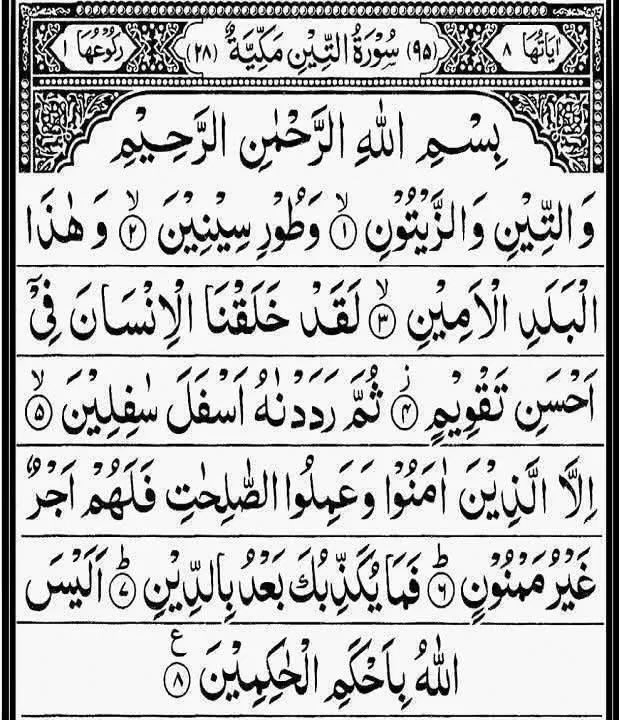 اٰيَاتُهَا ٨ (٩٥) سُوْرَةُ التِّيْنِ مَكِّيَّةٌ (٢٨) رُكُوْعُهَا ١
بِسْمِ اللّٰهِ الرَّحْمٰنِ الرَّحِيْمِ
وَالتِّيْنِ وَالزَّيْتُوْنِ ۙ﴿١﴾ وَطُوْرِ سِيْنِيْنَ ۙ﴿٢﴾ وَهٰذَا
الْبَلَدِ الْاَمِيْنِ ۙ﴿٣﴾ لَقَدْ خَلَقْنَا الْاِنْسَانَ فِيْٓ
اَحْسَنِ تَقْوِيْمٍ ؗ﴿٤﴾ ثُمَّ رَدَدْنٰهُ اَسْفَلَ سٰفِلِيْنَ ۙ﴿٥﴾
اِلَّا الَّذِيْنَ اٰمَنُوْا وَعَمِلُوا الصّٰلِحٰتِ فَلَهُمْ اَجْرٌ
غَيْرُ مَمْنُوْنٍ ؕ﴿٦﴾ فَمَا يُكَذِّبُكَ بَعْدُ بِالدِّيْنِ ؕ﴿٧﴾ اَلَيْسَ
اللّٰهُ بِاَحْكَمِ الْحٰكِمِيْنَ ﴿٨﴾ ع